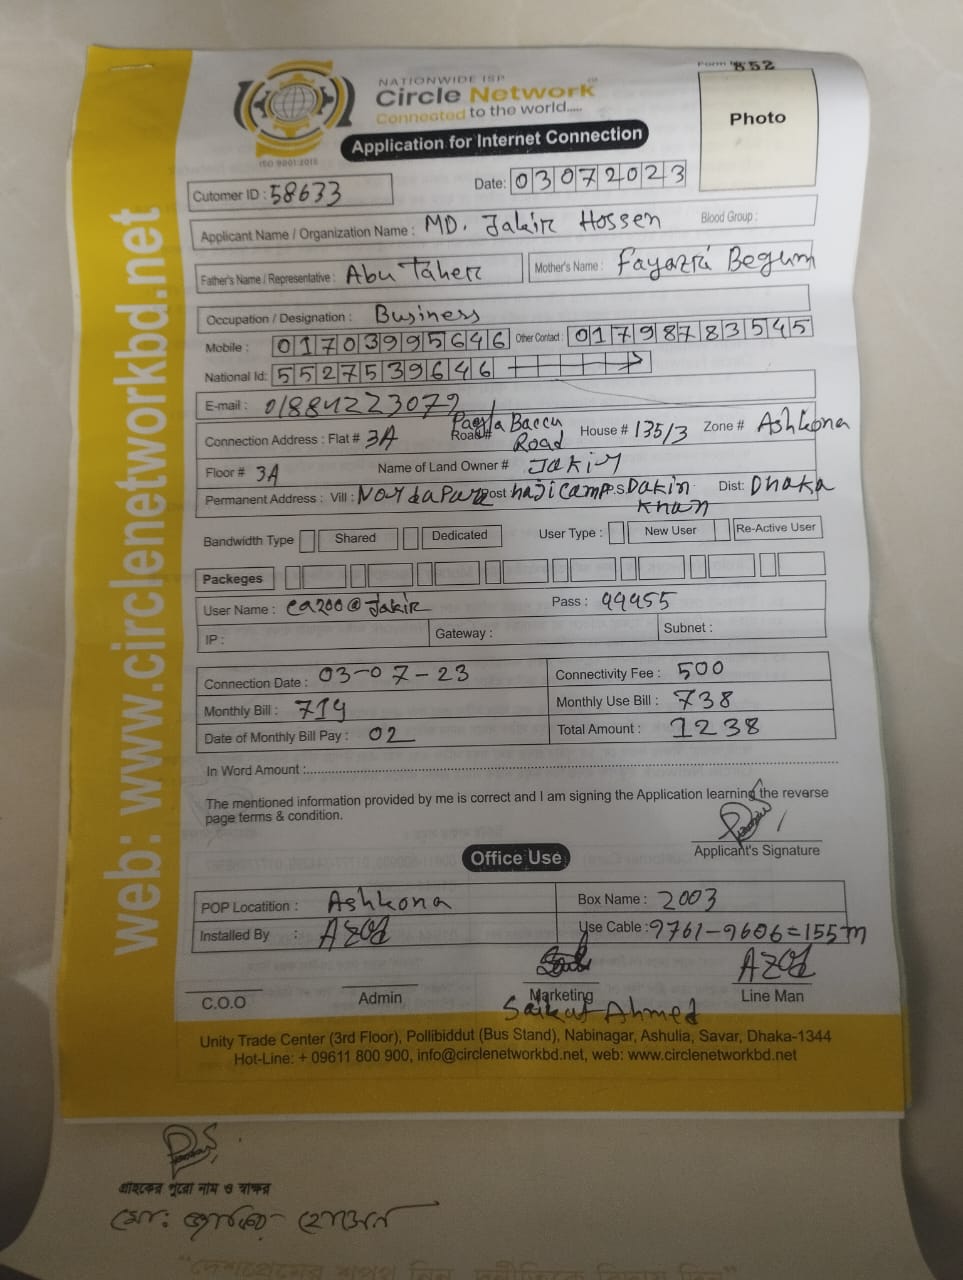 Form No. 852
NATIONWIDE ISP
Circle Network
Connected to the world.....
ISO 9001:2015
Application for Internet Connection
Photo
Cutomer ID : 58633
Date: 03072023
Applicant Name / Organization Name : MD. Jakir Hossen Blood Group :
Father's Name / Representative : Abu Taher Mother's Name : Begum
Occupation / Designation : Business
Mobile : 01703995646 Other Contact : 01798783545
National Id: 5527539646
E-mail : 01884223079
Connection Address : Flat # 3A Road # Road House # 135/3 Zone # Ashkona
Floor # 3A Name of Land Owner # Jakir
Permanent Address : Vill : Post haji camp P.S Dakin khan Dist: Dhaka
Bandwidth Type Shared Dedicated User Type : New User Re-Active User
Packeges
User Name : @Jakir Pass : 99955
IP : Gateway : Subnet :
Connection Date : 03-07-23 Connectivity Fee : 500
Monthly Bill : 714 Monthly Use Bill : 738
Date of Monthly Bill Pay : 02 Total Amount : 1238
In Word Amount :
The mentioned information provided by me is correct and I am signing the Application learning the reverse
page terms & condition.
Applicant's Signature
Office Use
POP Locatition : Ashkona Box Name : 2003
Installed By : AZOd Use Cable : 9761-9606=155m
AZOd
C.O.O Admin Marketing Line Man
Saikat Ahmed
Unity Trade Center (3rd Floor), Pollibiddut (Bus Stand), Nabinagar, Ashulia, Savar, Dhaka-1344
Hot-Line: + 09611 800 900, info@circlenetworkbd.net, web: www.circlenetworkbd.net
web: www.circlenetworkbd.net
গ্রাহকের পুরো নাম ও স্বাক্ষর
মো: হোসেন